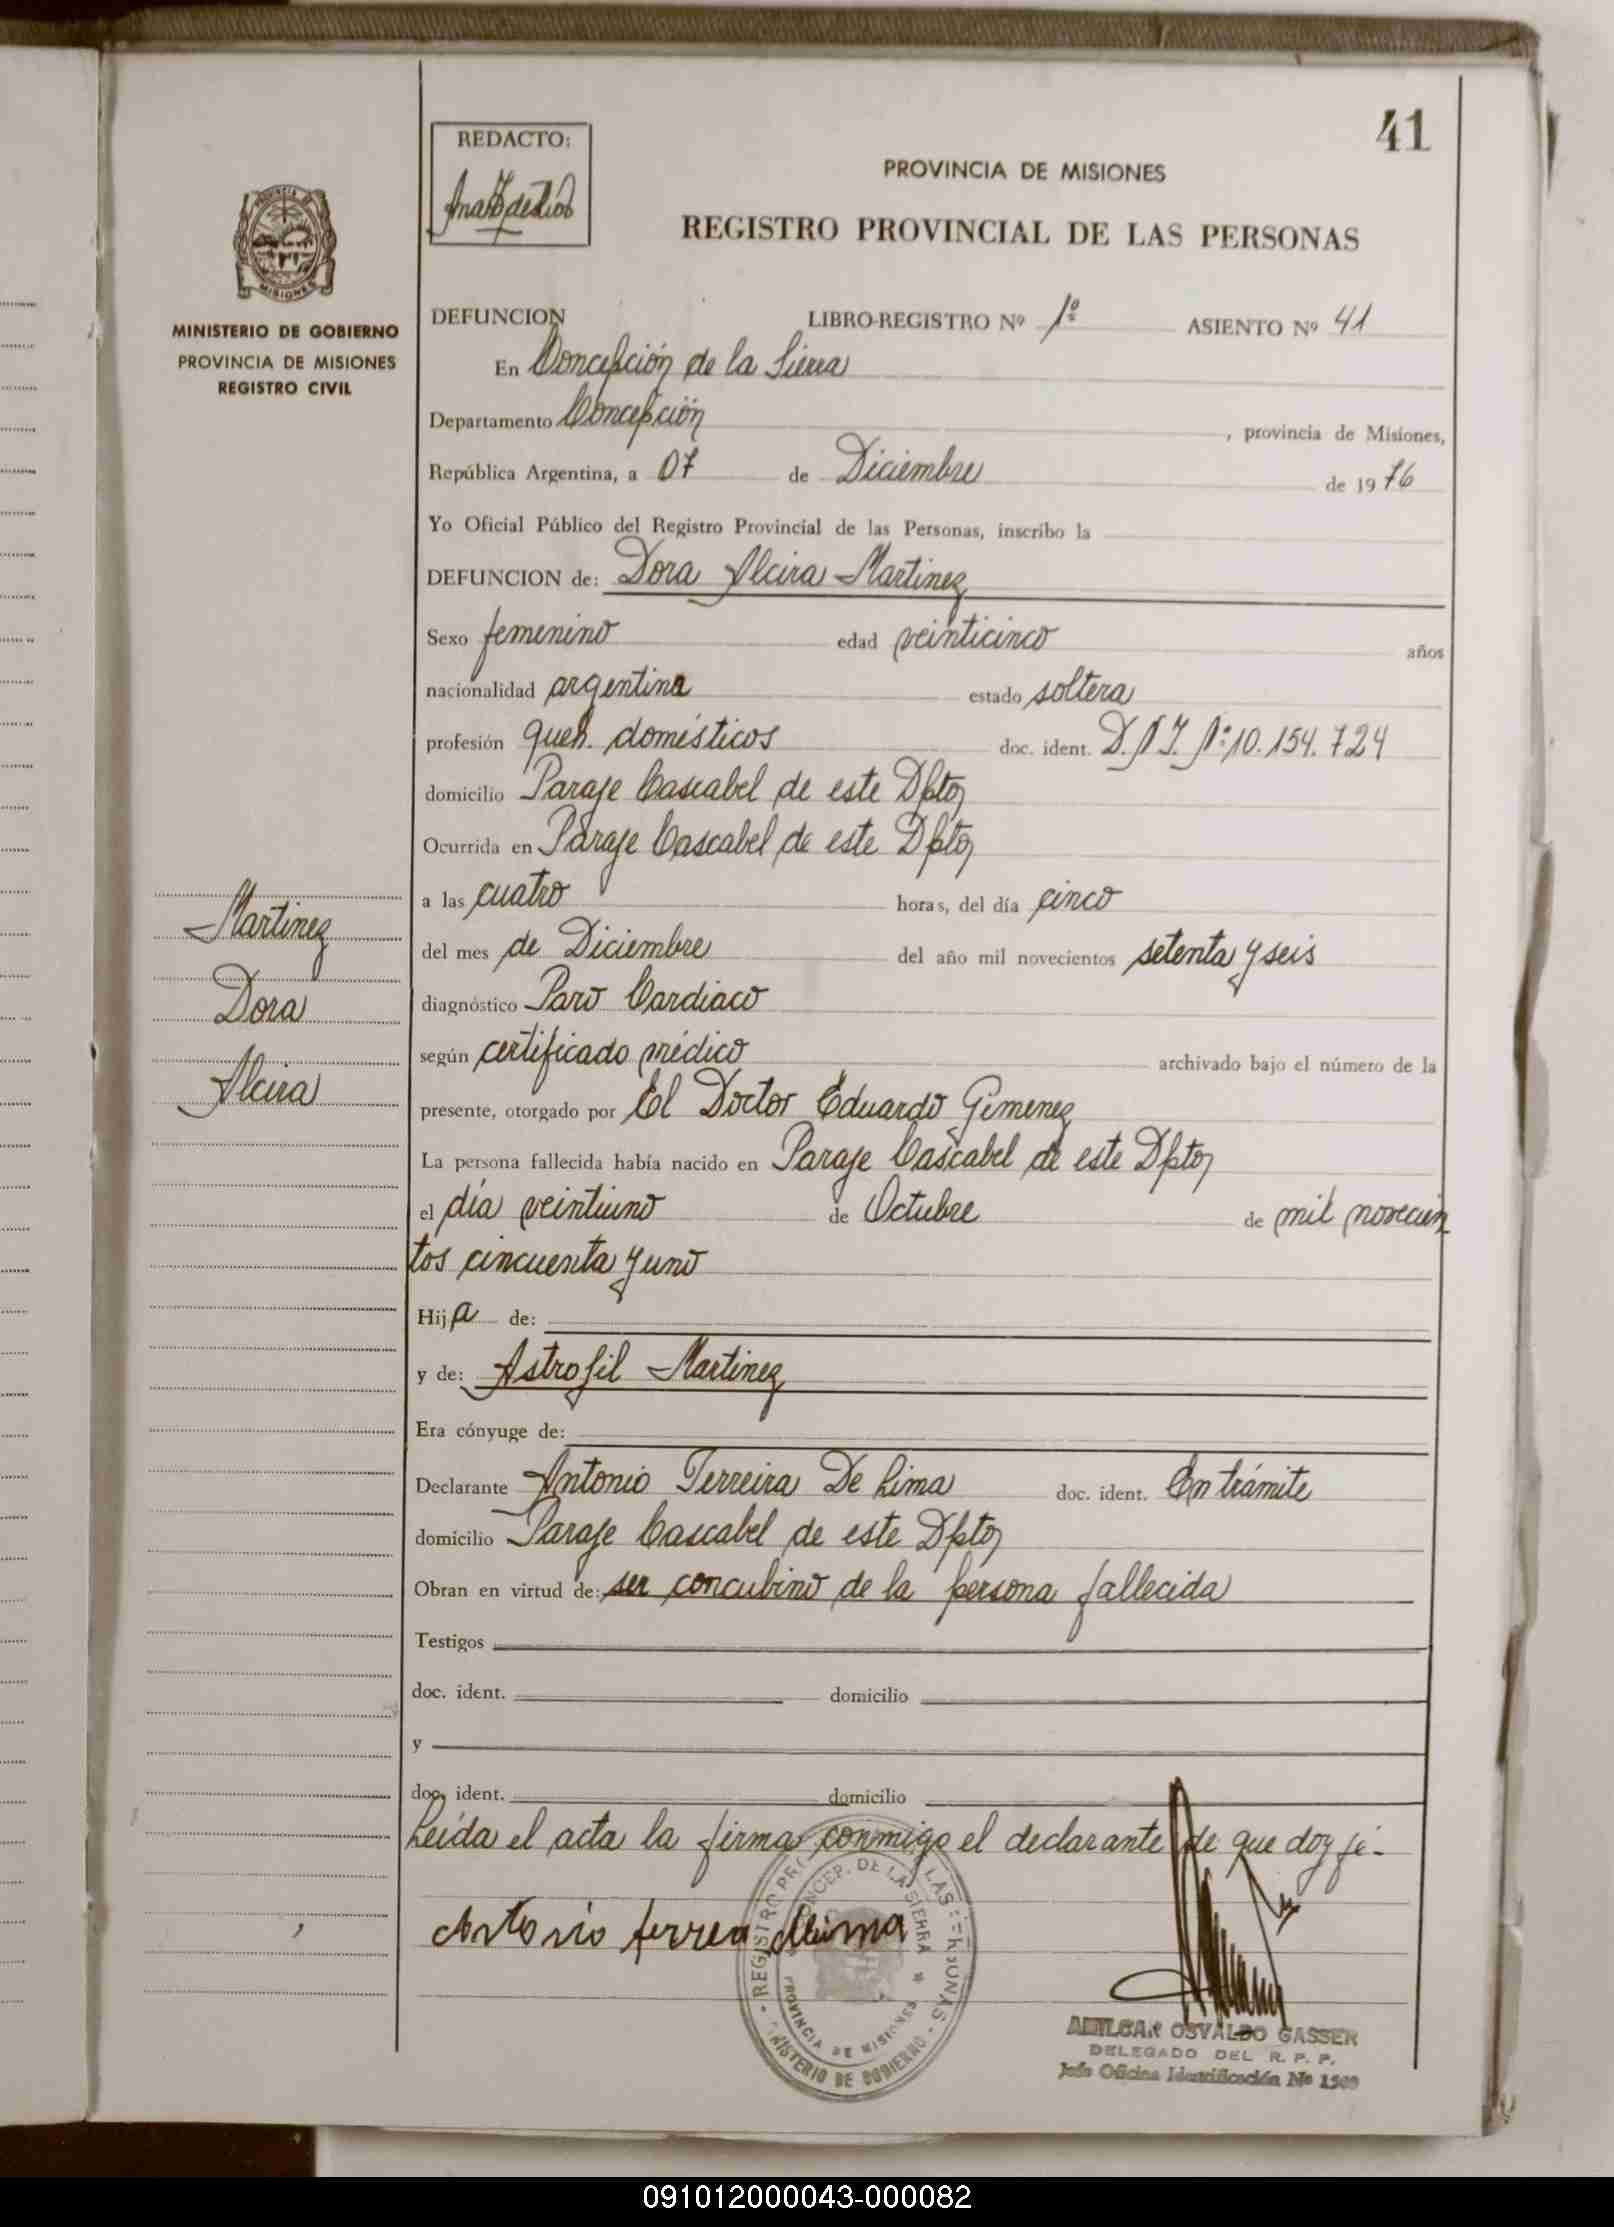 41
REDACTO:
PROVINCIA DE MISIONES
REGISTRO PROVINCIAL DE LAS PERSONAS
PROVINCIA DE
MISIONES
MINISTERIO DE GOBIERNO
PROVINCIA DE MISIONES
REGISTRO CIVIL
DEFUNCION LIBRO-REGISTRO Nº 1º ASIENTO Nº 41
En Concepción de la Sierra
Departamento Concepción, provincia de Misiones,
República Argentina, a 07 de Diciembre de 1976
Yo Oficial Público del Registro Provincial de las Personas, inscribo la
DEFUNCION de: Dora Alcira Martinez
Sexo femenino edad veinticinco años
nacionalidad argentina estado soltera
profesión queh. domésticos doc. ident. D.N.I. Nº 10.154.724
domicilio Paraje Cascabel de este Dpto
Ocurrida en Paraje Cascabel de este Dpto
a las cuatro horas, del día cinco
del mes de Diciembre del año mil novecientos setenta y seis
diagnóstico Paro Cardiaco
según certificado médico archivado bajo el número de la
presente, otorgado por El Doctor Eduardo Gimenez
La persona fallecida había nacido en Paraje Cascabel de este Dpto
el día veintiuno de Octubre de mil novecien
tos cincuenta y uno
Hija de:
y de: Astrofil Martinez
Era cónyuge de:
Declarante Antonio Ferreira De Lima doc. ident. En trámite
domicilio Paraje Cascabel de este Dpto
Obran en virtud de: ser concubino de la persona fallecida
Testigos
doc. ident. domicilio
y
doc. ident. domicilio
Leída el acta la firma conmigo el declarante de que doy fé.-
Martinez
Dora
Alcira
Antonio
REGISTRO LAS PERSONAS
CONCEP. DE LA SIERRA
PROVINCIA DE MISIONES
MINISTERIO DE GOBIERNO
AMILCAR OSVALDO GASSER
DELEGADO DEL R. P. P.
Jefe Oficina Identificación Nº
091012000043-000082